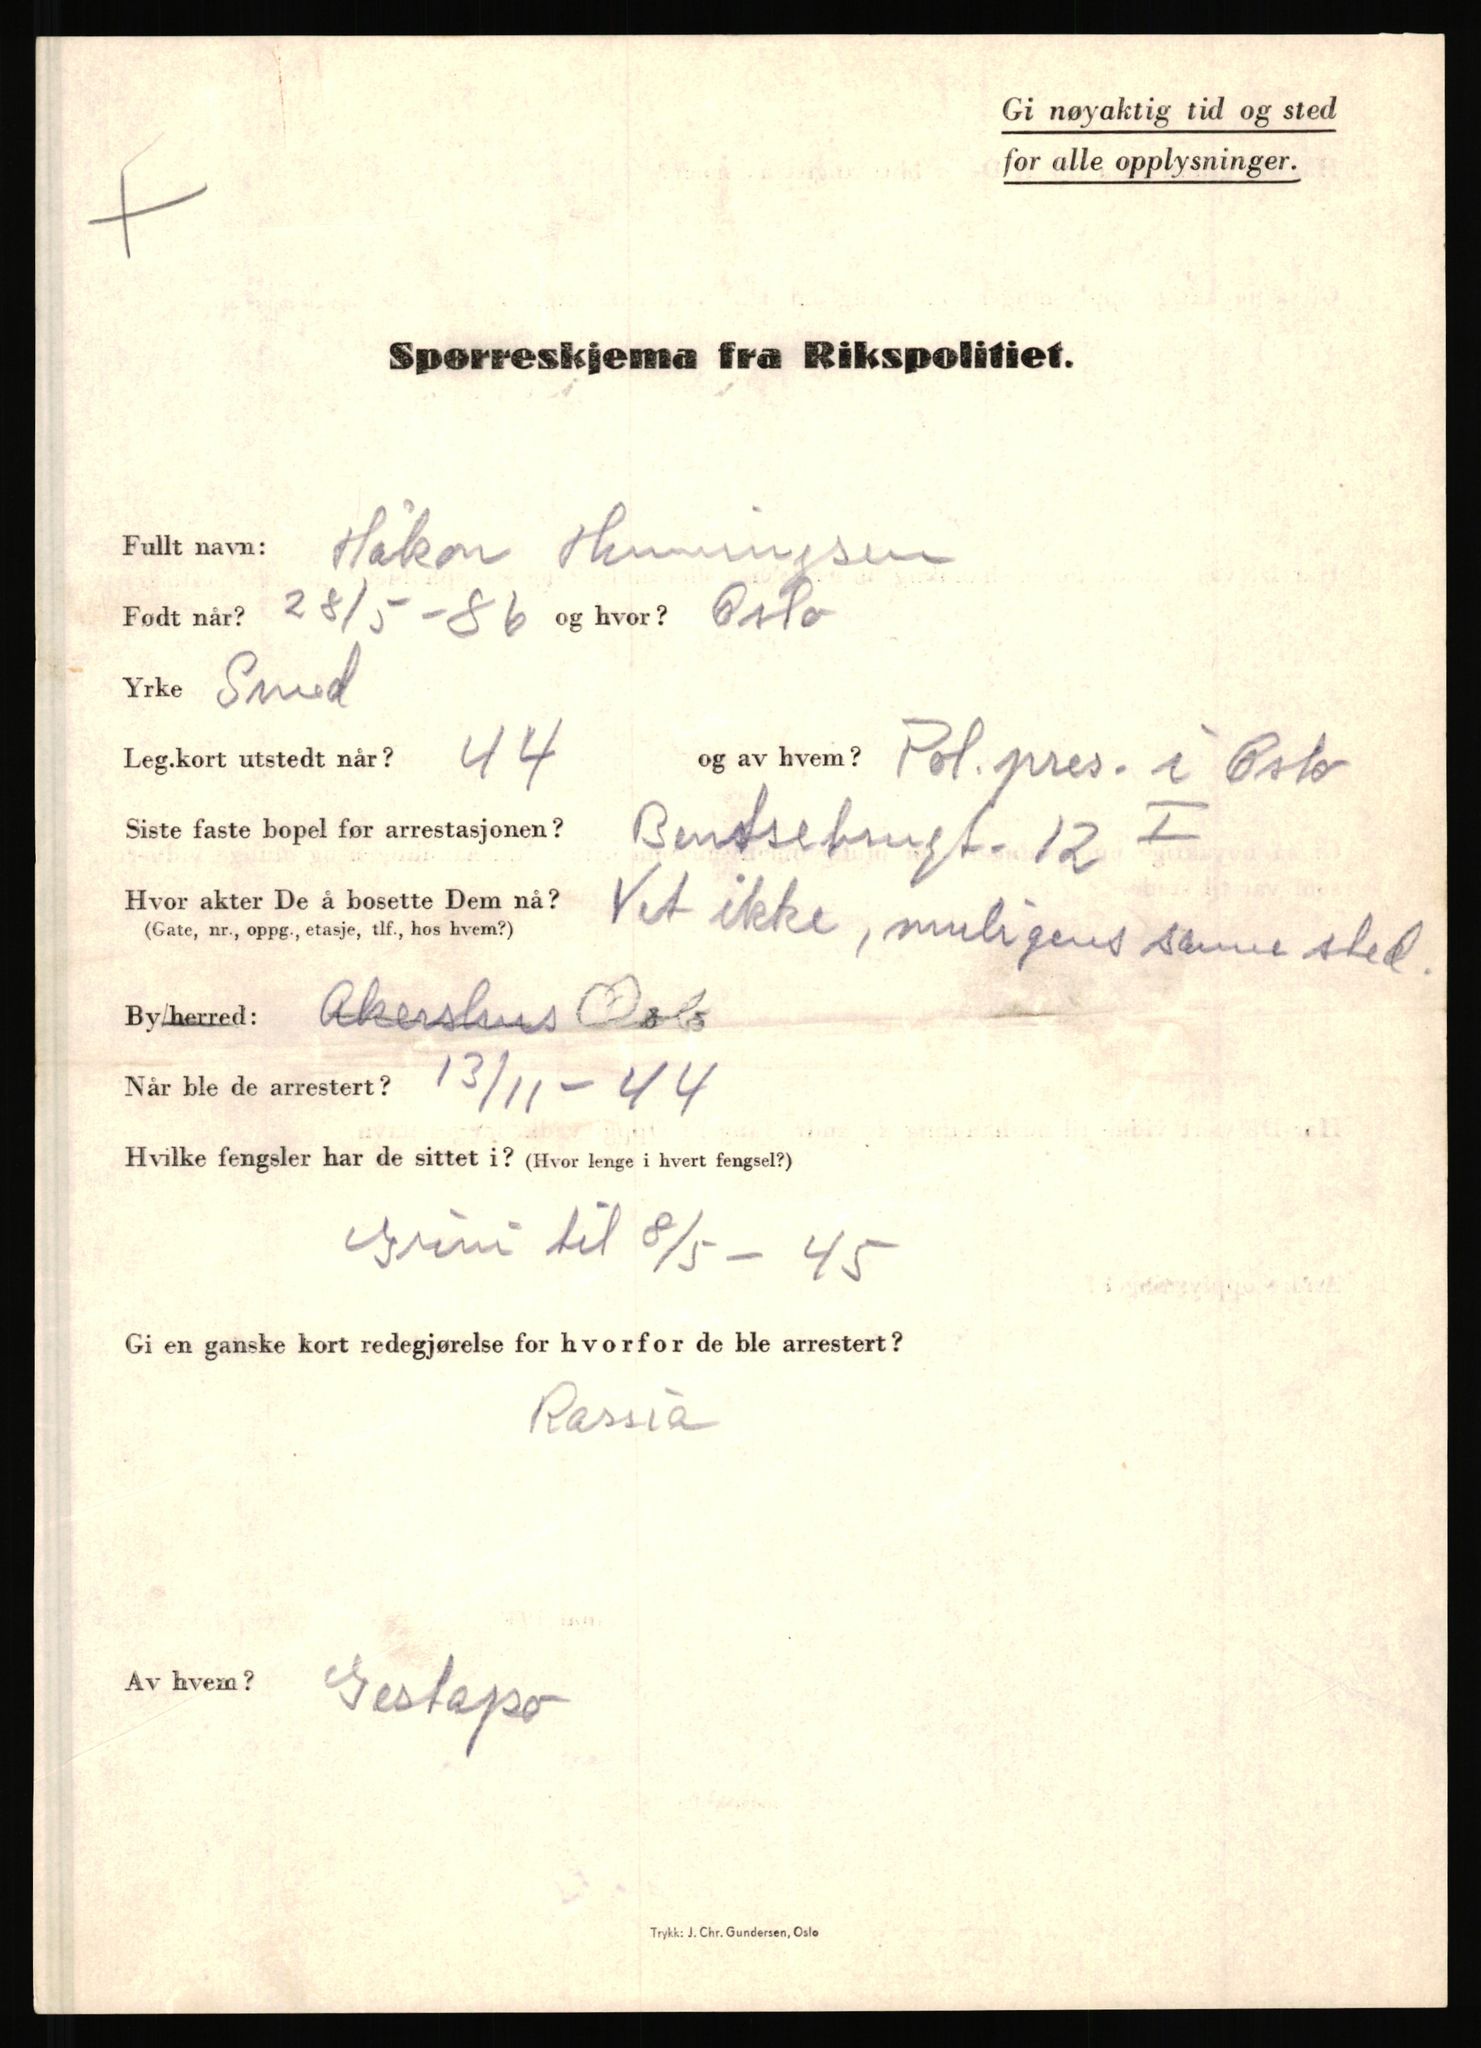 Gi nøyaktig tid og sted
for alle opplysninger.
Spørreskjema fra Rikspolitiet.
Fullt navn: Håkon Henningsen
Født når? 28/5 - 86 og hvor? Oslo
Yrke Smed
Leg.kort utstedt når? 44 og av hvem? Pol. pres. i Oslo
Siste faste bopel før arrestasjonen? Bentsebrugt. 12 I
Hvor akter De å bosette Dem nå? Vet ikke, muligens samme sted.
(Gate, nr., oppg., etasje, tlf., hos hvem?)
By/herred: Akershus Oslo
Når ble de arrestert? 13/11 - 44
Hvilke fengsler har de sittet i? (Hvor lenge i hvert fengsel?)
Grini til 8/5 - 45
Gi en ganske kort redegjørelse for hvorfor de ble arrestert?
Rassia
Av hvem? Gestapo
Trykk: J. Chr. Gundersen, Oslo